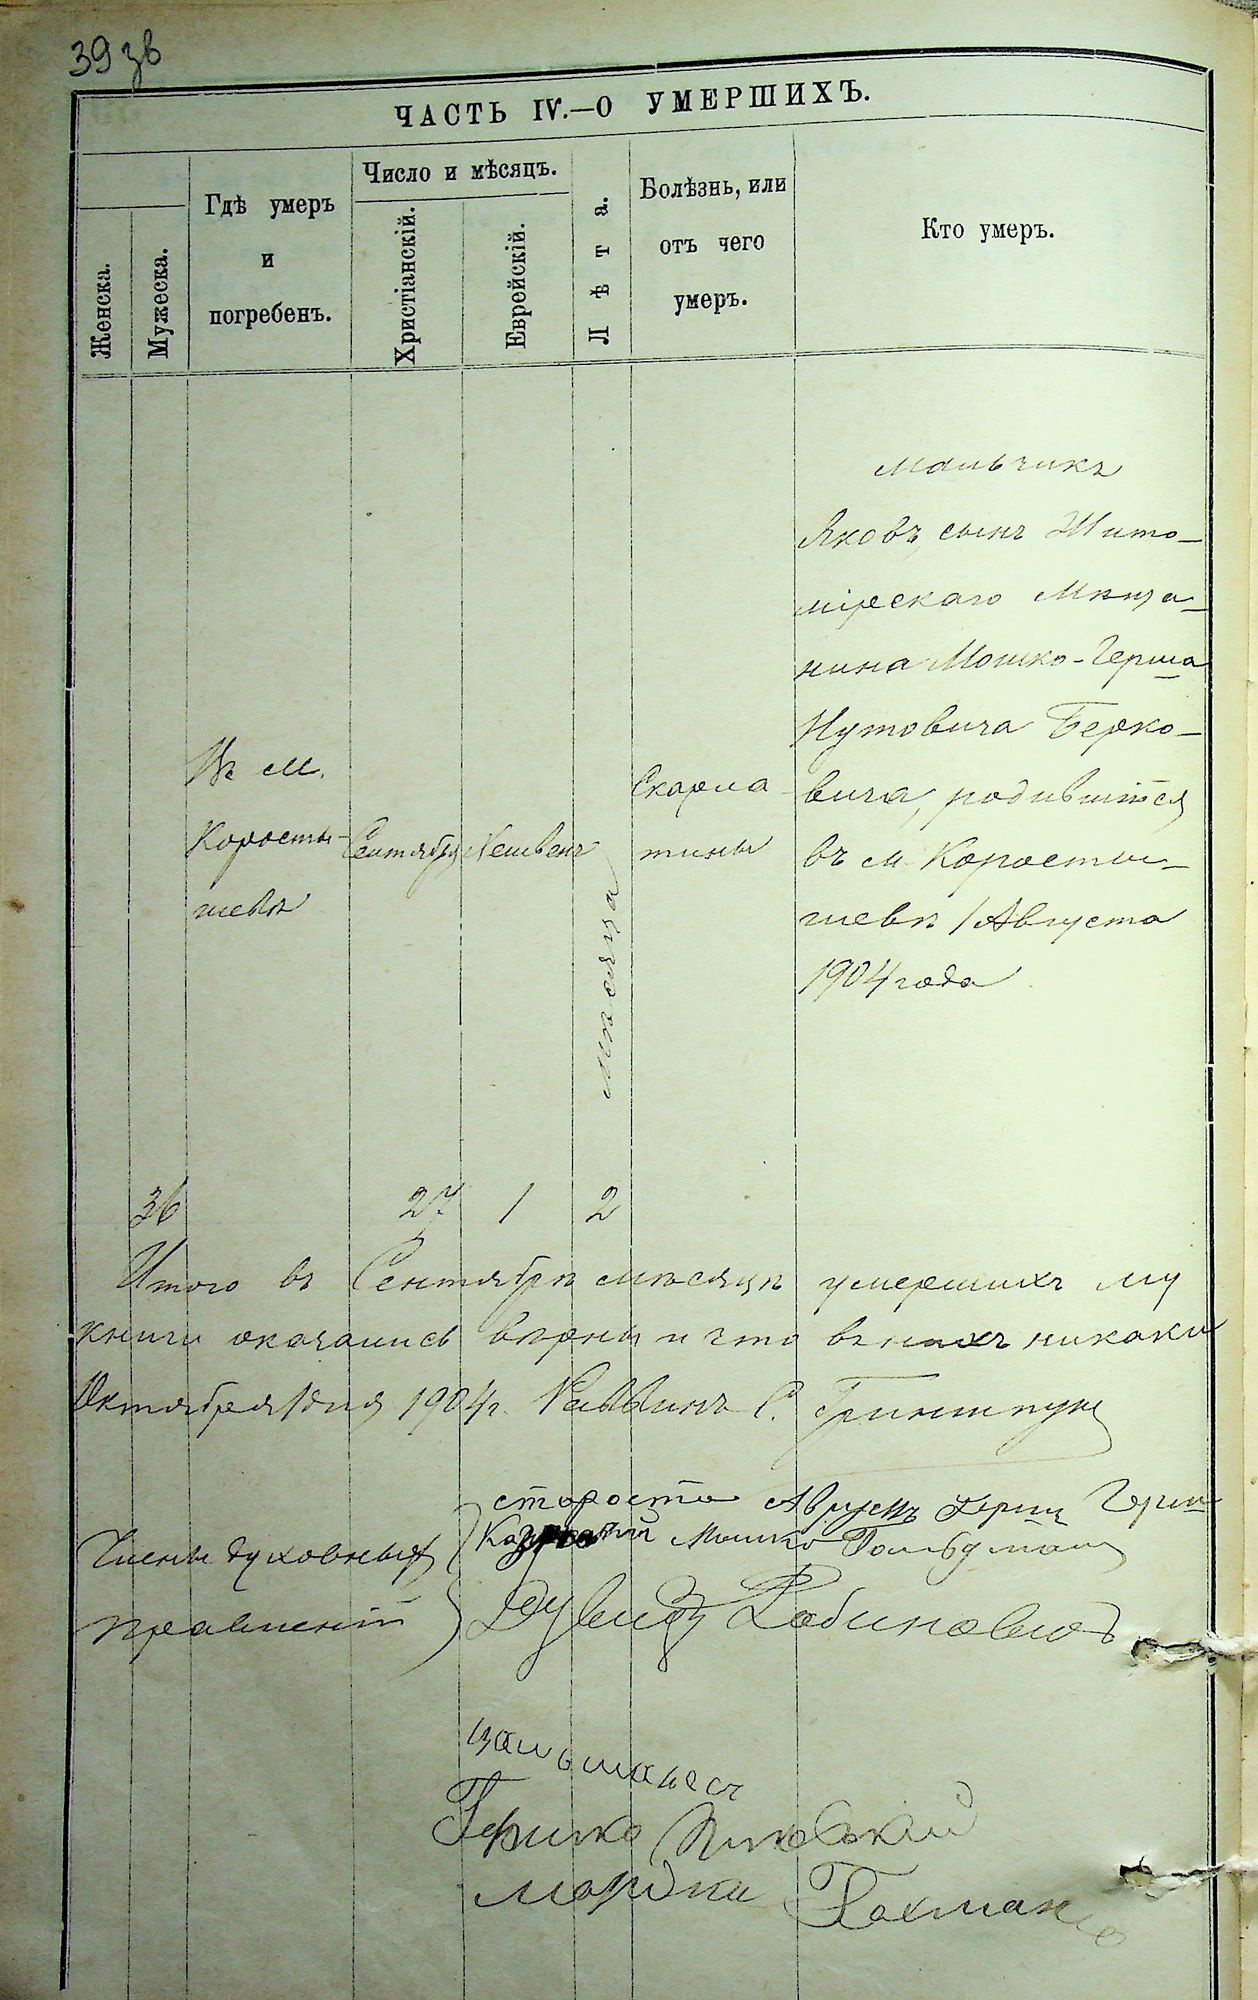 39 зв
ЧАСТЬ IV.—О УМЕРШИХЪ.
Женска.
Мужеска.
Гдѣ умеръ
и
погребенъ.
Число и мѣсяцъ.
Христіанскій.
Еврейскій.
Лѣта.
Болѣзнь, или
отъ чего
умеръ.
Кто умеръ.
36
Въ м.
Коросты-
шевѣ
Сентября
27
Хешвенъ
1
мѣсяца
2
Скарла-
тины
Мальчикъ
Яковъ, сынъ Жито-
мірскаго Мѣща-
нина Мошко-Герша
Нутовича Берко-
вича, родившійся
въ м. Коросты-
шевѣ 1 Августа
1904 года
Итого въ Сентябрѣ мѣсяцѣ умершихъ му
книги оказались вѣрны и что въ нихъ никаки
Октября 1 дня 1904 г. Раввинъ С. Гриншпунъ
Члены духовныхъ
правленій
староста
Мошко Гольдман
Дувидъ Рабиновичъ
Мордко